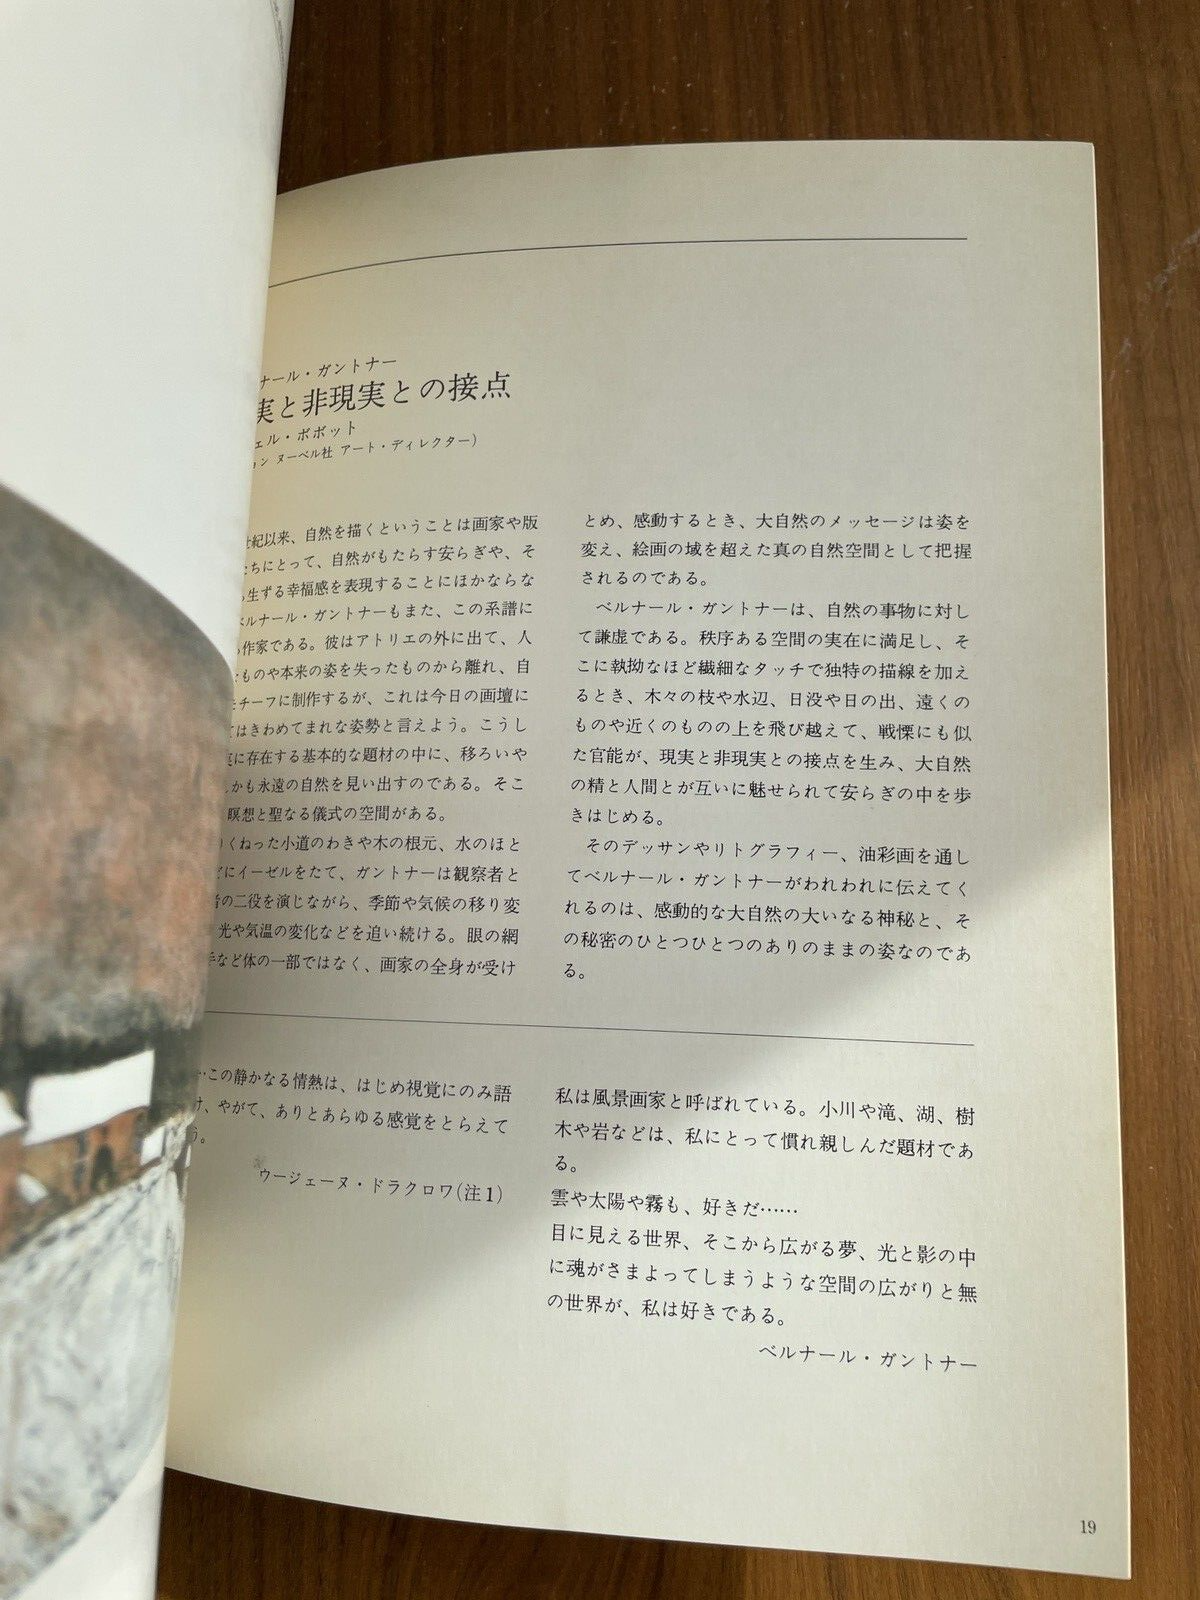 ナール・ガントナー
実と非現実との接点
ェル・ボボット
ョン ヌーベル社 アート・ディレクター)
紀以来、自然を描くということは画家や版
ちにとって、自然がもたらす安らぎや、そ
生ずる幸福感を表現することにほかならな
ベルナール・ガントナーもまた、この系譜に
作家である。彼はアトリエの外に出て、人
ものや本来の姿を失ったものから離れ、自
モチーフに制作するが、これは今日の画壇に
てはきわめてまれな姿勢と言えよう。こうし
に存在する基本的な題材の中に、移ろいや
かも永遠の自然を見い出すのである。そこ
瞑想と聖なる儀式の空間がある。
くねった小道のわきや木の根元、水のほと
にイーゼルをたて、ガントナーは観察者と
者の二役を演じながら、季節や気候の移り変
光や気温の変化などを追い続ける。眼の網
手など体の一部ではなく、画家の全身が受け
とめ、感動するとき、大自然のメッセージは姿を
変え、絵画の域を超えた真の自然空間として把握
されるのである。
ベルナール・ガントナーは、自然の事物に対し
て謙虚である。秩序ある空間の実在に満足し、そ
こに執拗なほど繊細なタッチで独特の描線を加え
るとき、木々の枝や水辺、日没や日の出、遠くの
ものや近くのものの上を飛び越えて、戦慄にも似
た官能が、現実と非現実との接点を生み、大自然
の精と人間とが互いに魅せられて安らぎの中を歩
きはじめる。
そのデッサンやリトグラフィー、油彩画を通し
てベルナール・ガントナーがわれわれに伝えてく
れるのは、感動的な大自然の大いなる神秘と、そ
の秘密のひとつひとつのありのままの姿なのであ
る。
…この静かなる情熱は、はじめ視覚にのみ語
け、やがて、ありとあらゆる感覚をとらえて
う。
ウージェーヌ・ドラクロワ(注1)
私は風景画家と呼ばれている。小川や滝、湖、樹
木や岩などは、私にとって慣れ親しんだ題材であ
る。
雲や太陽や霧も、好きだ……
目に見える世界、そこから広がる夢、光と影の中
に魂がさまよってしまうような空間の広がりと無
の世界が、私は好きである。
ベルナール・ガントナー
19